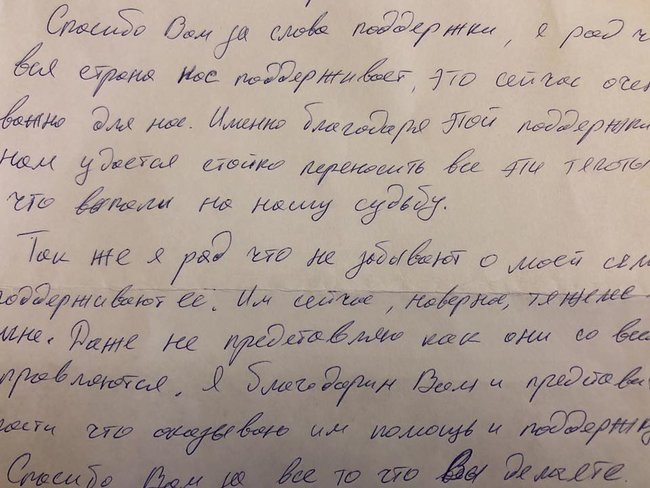 Спасибо Вам за слова поддержки, я рад ч
вся страна нас поддерживает, это сейчас очен
важно для нас. Именно благодаря этой поддержки
нам удается стойко переносить все эти тяготы
что выпали на нашу судьбу.
Так же я рад что не забывают о моей сем
поддерживают ее. Им сейчас, наверна, тяжеле
мне. Даже не представляю как они со всем
правляются. Я благодарин Вам и представи
ласти что оказываю им помощь и поддержку
Спасибо Вам за все то что Вы делаете.